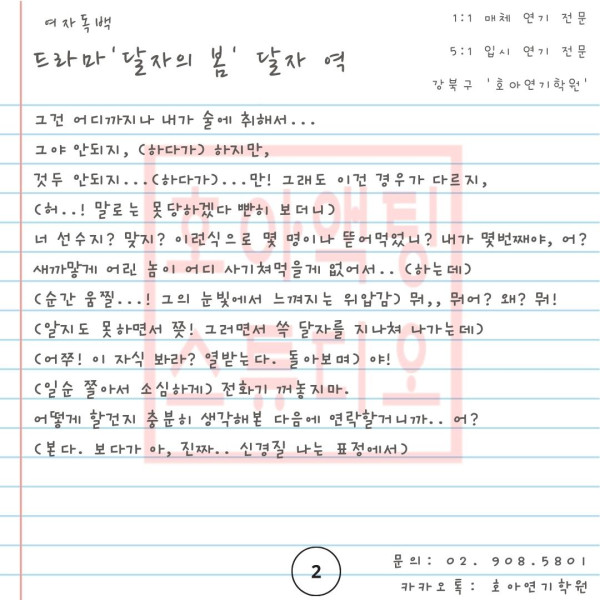 여자독백
1:1 매체 연기 전문
드라마'달자의 봄' 달자 역
5:1 입시 연기 전문
강북구 '호아연기학원'
그건 어디까지나 내가 술에 취해서...
그야 안되지, (하다가) 하지만,
것두 안되지...(하다가)...만! 그래도 이건 경우가 다르지,
(허..! 말로는 못당하겠다 빤히 보더니)
너 선수지? 맞지? 이런식으로 몇 명이나 뜯어먹었니? 내가 몇번째야, 어?
새까맣게 어린 놈이 어디 사기쳐먹을게 없어서.. (하는데)
(순간 움찔...! 그의 눈빛에서 느껴지는 위압감) 뭐,, 뭐어? 왜? 뭐!
(알지도 못하면서 쯧! 그러면서 쓱 달자를 지나쳐 나가는데)
(어쭈! 이 자식 봐라? 열받는다. 돌아보며) 야!
(일순 쫄아서 소심하게) 전화기 꺼놓지마.
어떻게 할건지 충분히 생각해본 다음에 연락할거니까.. 어?
(본다. 보다가 아, 진짜.. 신경질 나는 표정에서)
호아액팅
스튜디오
2
문의: 02. 908.5801
카카오톡: 호아연기학원